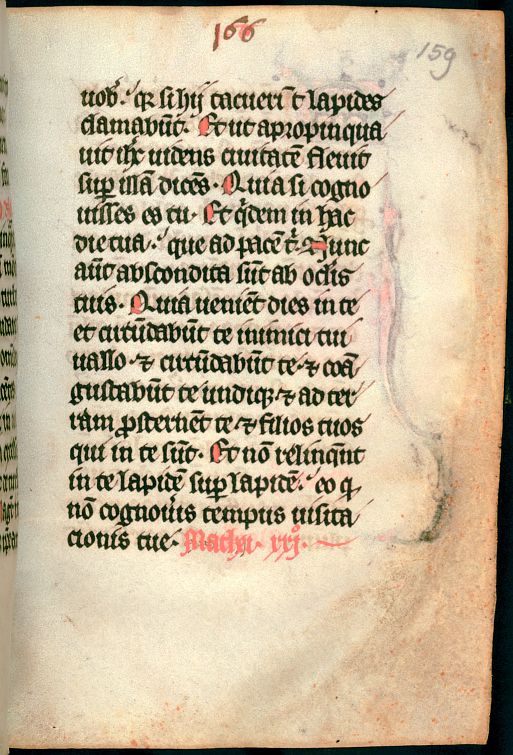 166
159
uob᷒. qꝛ si hij tacuerīt lapides
clamabūt. Et ut apropinqua
uit ihc̄ uidens ciuitatē fleuit
suꝑ illā dicēs. Quia si cogno
uisses et tu. Et qͥdem in hac
die tua. que ad pacē t̄. Nunc
aūt abscondita sūt ab oc̄lis
tuis. Quia ueniēt dies in te
et circūdabūt te inimici tui
uallo. ⁊ circūdabūt te. ⁊ coā
gustabūt te undiqꝫ ⁊ ad ter
ram ꝓsternēt te ⁊ filios tuos
qui in te sūt. Et nō relinq̄nt
in te lapidē suꝑ lapidē. eo ꝙ
nō cognoūis tempus uisita
cionis tue. Mathi. xxj.